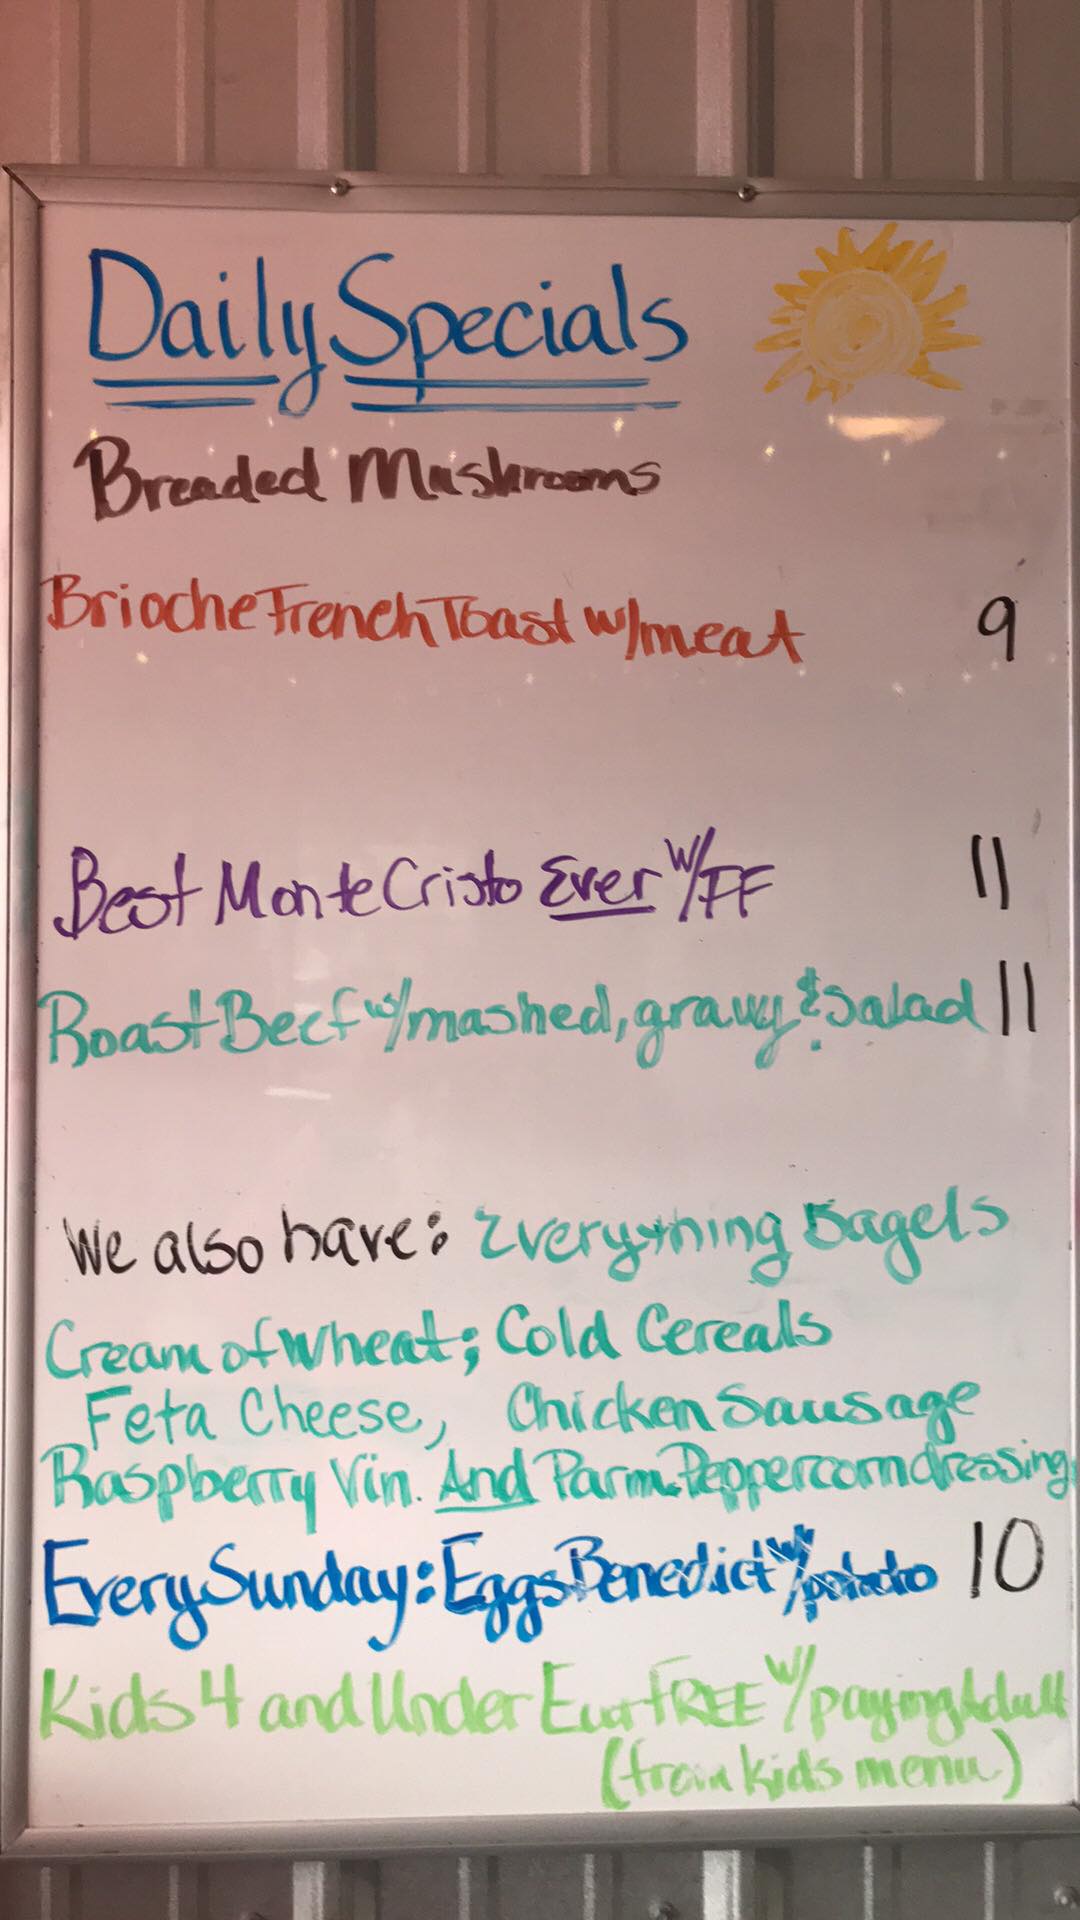 Daily Specials
Breaded Mushrooms
Brioche French Toast w/meat 9
Best Monte Cristo Ever w/FF 11
Roast Beef w/mashed, gravy & Salad 11
We also have: Everything Bagels
Cream of Wheat; Cold Cereals
Feta Cheese, Chicken Sausage
Raspberry Vin. And Parm. Peppercorn dressing
Every Sunday: Eggs Benedict w/potato 10
Kids 4 and Under Eat FREE w/paying Adult
(from kids menu)